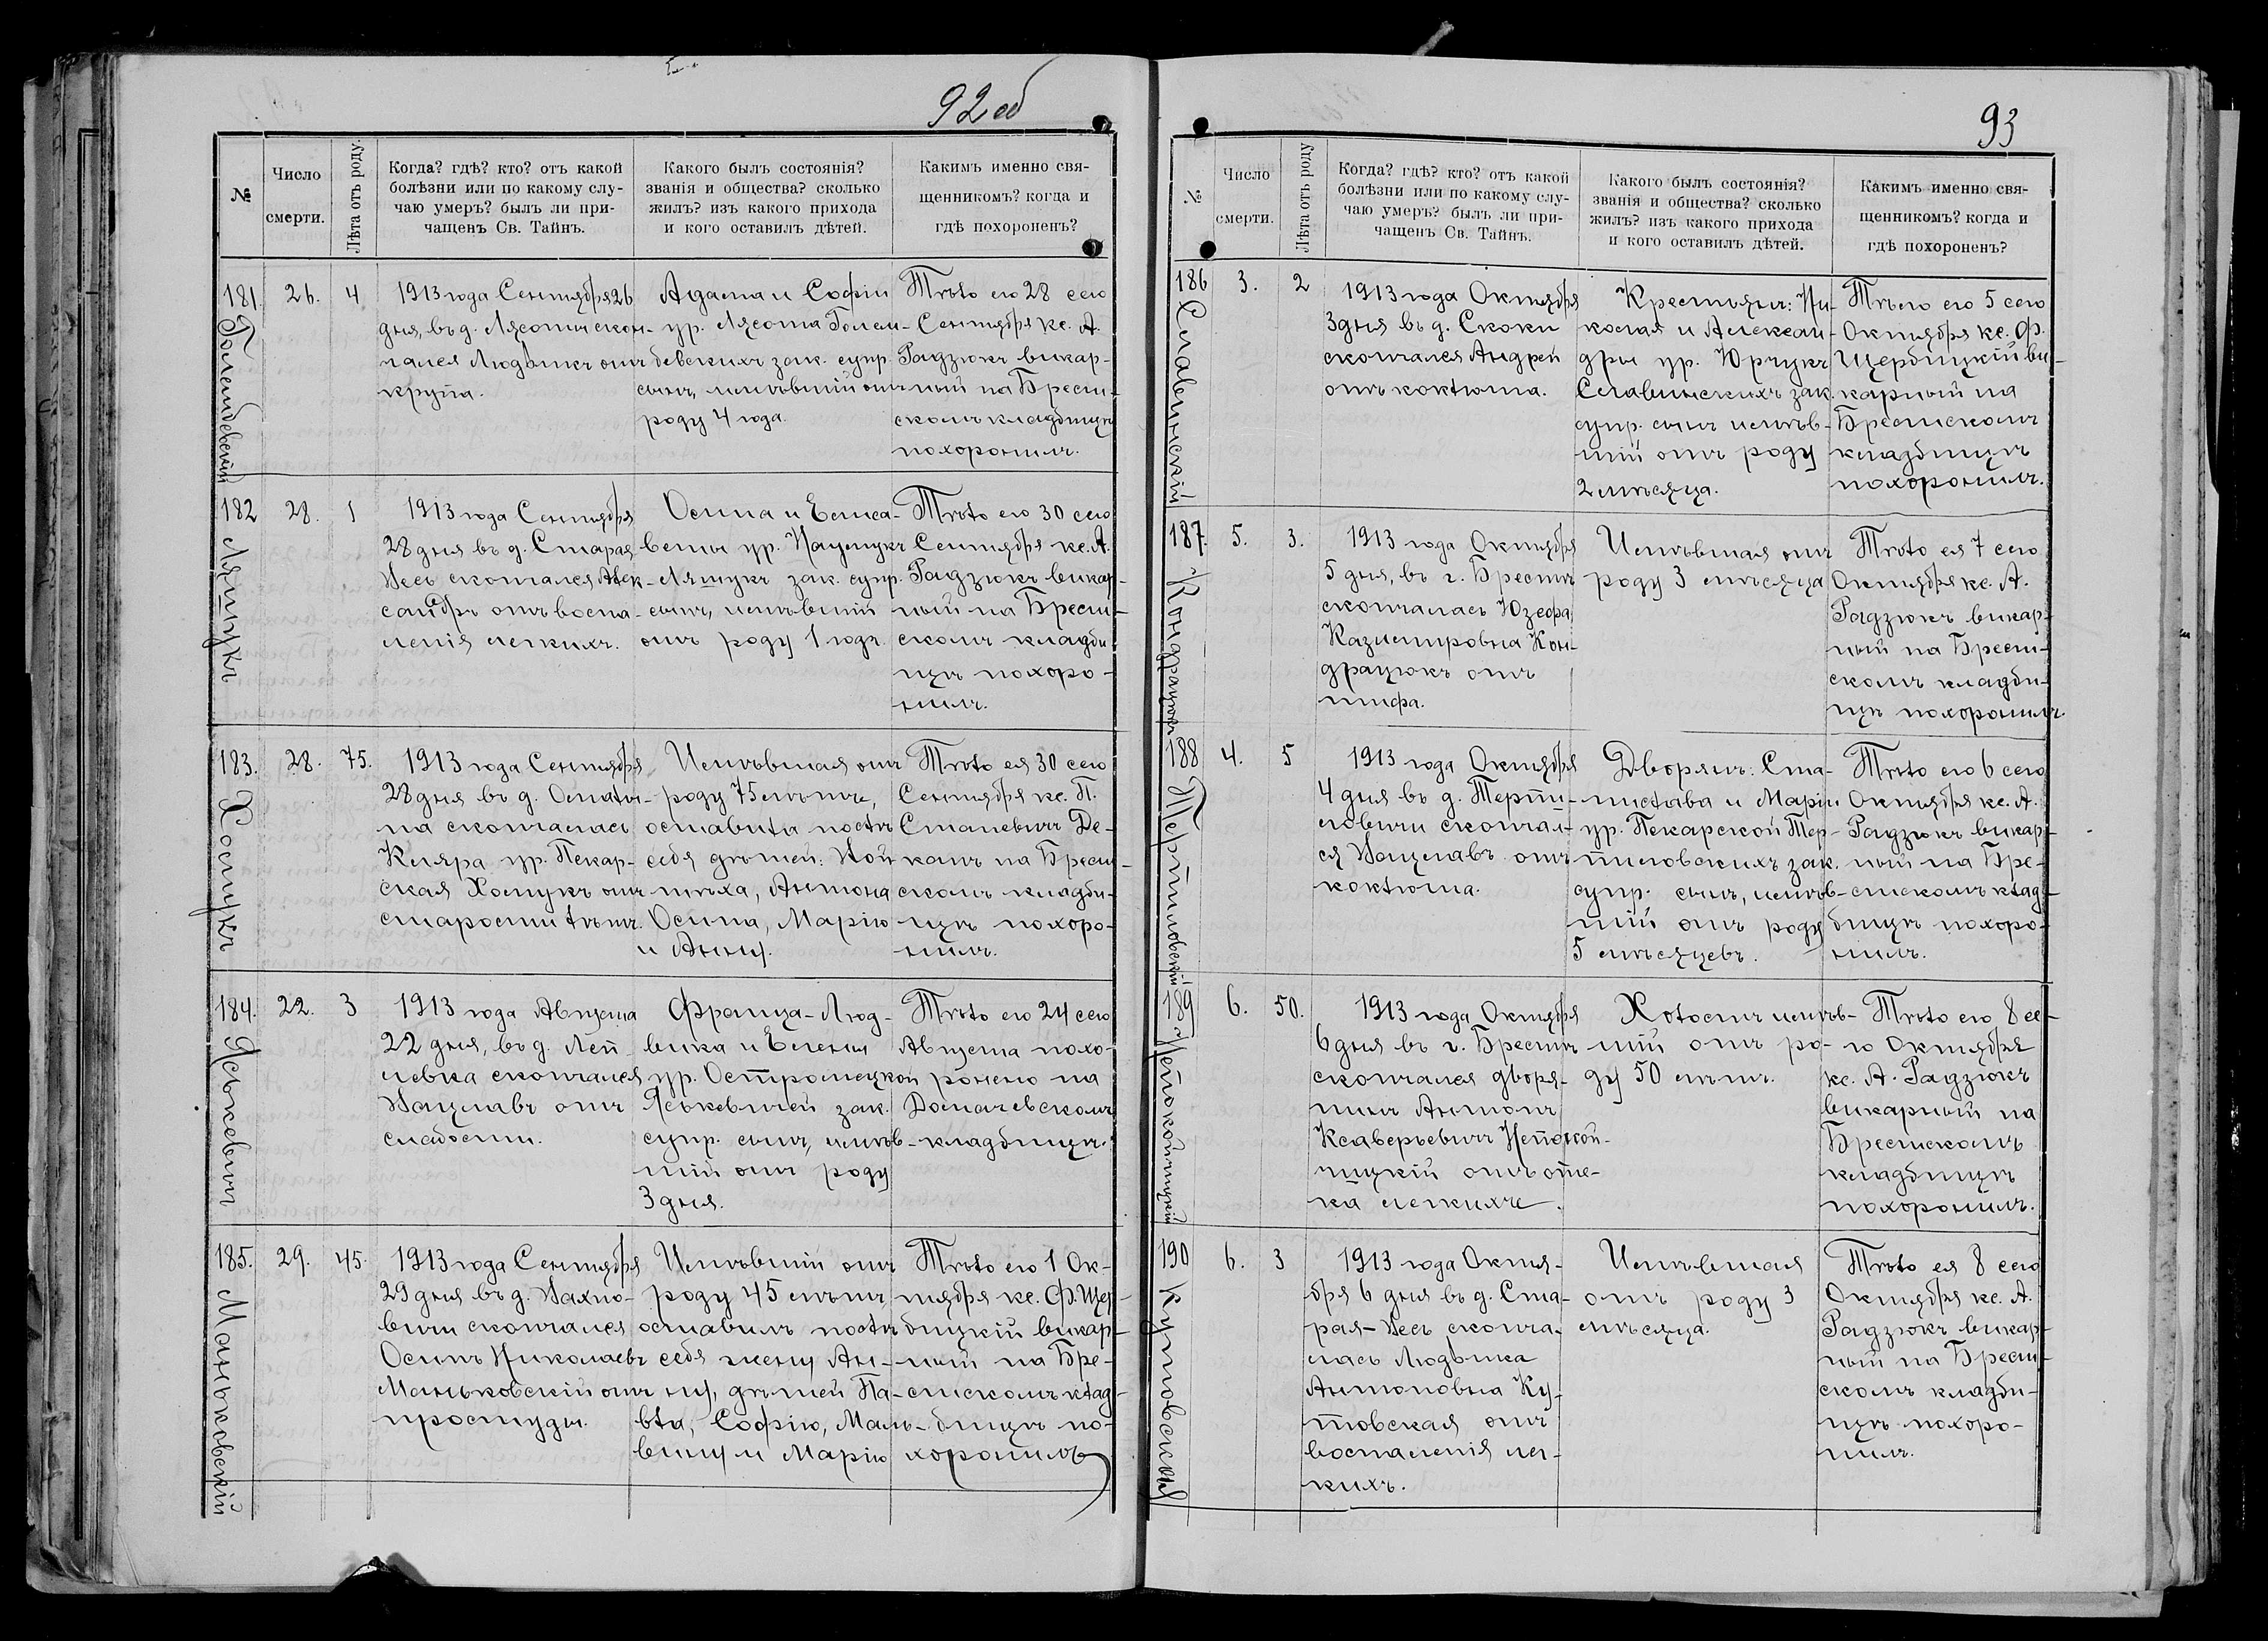 92 об
№
Число
смерти.
Лѣта отъ роду.
Когда? гдѣ? кто? отъ какой
болѣзни или по какому слу-
чаю умеръ? былъ ли при-
чащенъ Св. Тайнъ.
Какого былъ состоянія?
званія и общества? сколько
жилъ? изъ какого прихода
и кого оставилъ дѣтей.
Какимъ именно свя-
щенникомъ? когда и
гдѣ похороненъ?
181.
Голембевскій
26.
4
1913 года Сентября 26
дня, въ д. Лясота скон-
чался Людвикъ отъ
крупа.
Адама и Софіи
ур. Лясота Голем-
бевскихъ зак. супр.
сынъ, имѣвшій отъ
роду 4 года.
Тѣло его 28 сего
Сентября кс. А.
Радзюкъ викар-
ный на Брест-
скомъ кладбищѣ
похоронилъ.
182
Ляшукъ
28.
1
1913 года Сентября
28 дня въ д. Старая
Весь скончался Алек-
сандръ отъ воспа-
ленія легкихъ.
Осипа и Елиса-
веты ур. Наумукъ
Ляшукъ зак. супр.
сынъ, имѣвшій
отъ роду 1 годъ.
Тѣло его 30 сего
Сентября кс. А.
Радзюкъ викар-
ный на Брест-
скомъ кладби-
щѣ похоро-
нилъ.
183.
Хомукъ
28.
75.
1913 года Сентября
28 дня въ д.
на скончалась
Кляра ур. Пекар-
ская Хомукъ отъ
старости лѣтъ.
Имѣвшая отъ
роду 75 лѣтъ,
оставила послѣ
себя дѣтей: Вой-
тѣха, Антона
Осипа, Марію
и Анну.
Тѣло ея 30 сего
Сентября кс. П.
Станевичъ Де-
канъ на Брест-
скомъ кладби-
щѣ похоро-
нилъ.
184.
Яськевичъ
22.
3
1913 года Августа
22 дня, въ д. Леп-
левка скончался
Вацлавъ отъ
слабости.
Франца-Люд-
вика и Елены
ур. Остромецкой
Яськевичей зак.
супр. сынъ, имѣв-
шій отъ роду
3 дня.
Тѣло его 24 сего
Августа похо-
ронено на
Домачевскомъ
кладбищѣ.
185.
Маньковскій
29.
45.
1913 года Сентября
29 дня въ д. Вахно-
вичи скончался
Осипъ Николаевъ
Маньковскій отъ
простуды.
Имѣвшій отъ
роду 45 лѣтъ
оставилъ послѣ
себя жену Ан-
ну, дѣтей Па-
вла, Софію, Маль-
вину и Марію
Тѣло его 1 Ок-
тября кс. Ф. Щер-
бицкій викар-
ный на Бре-
стскомъ клад-
бищѣ по-
хоронилъ
93
№
Число
смерти.
Лѣта отъ роду
Когда? гдѣ? кто? отъ какой
болѣзни или по какому слу-
чаю умеръ? былъ ли при-
чащенъ Св. Тайнъ.
Какого былъ состоянія?
званія и общества? сколько
жилъ? изъ какого прихода
и кого оставилъ дѣтей.
Какимъ именно свя-
щенникомъ? когда и
гдѣ похороненъ?
186
Славинскій
3.
2
1913 года Октября
3 дня въ д. Скоки
скончался Андрей
отъ коклюша.
Крестьянъ: Ни-
колая и Алексан-
дры ур. Юрчукъ
Славинскихъ зак.
супр. сынъ имѣв-
шій отъ роду
2 мѣсяца.
Тѣло его 5 сего
Октября кс. Ф.
Щербицкій ви-
карный на
Брестскомъ
кладбищѣ
похоронилъ.
187.
Кондрацюкъ
5.
3.
1913 года Октября
5 дня, въ г. Брестѣ
скончалась Юзефа
Казимировна Кон-
драцюкъ отъ
тифа.
Имѣвшая отъ
роду 3 мѣсяца
Тѣло ея 7 сего
Октября кс. А.
Радзюкъ викар-
ный на Брест-
скомъ кладби-
щѣ похоронилъ.
188
Терпиловскій
4.
5
1913 года Октября
4 дня въ д. Терпи-
ловичи скончал-
ся Вацлавъ отъ
коклюша.
Дворянъ: Ста-
нислава и Маріи
ур. Пекарской Тер-
пиловскихъ зак.
супр. сынъ, имѣв-
шій отъ роду
5 мѣсяцевъ.
Тѣло его 6 сего
Октября кс. А.
Радзюкъ викар-
ный на Бре-
стскомъ клад-
бищѣ похоро-
нилъ.
189
Непокойчицкій
6.
50.
1913 года Октября
6 дня въ г. Брестѣ
скончался дворя-
нинъ Антонъ
Ксаверьевичъ Непокой-
чицкій отъ оте-
ка легкихъ.
Холостъ имѣв-
шій отъ ро-
ду 50 лѣтъ.
Тѣло его 8 се-
го Октября
кс. А. Радзюкъ
викарный на
Брестскомъ
кладбищѣ
похоронилъ.
190
Кутовская
6.
3
1913 года Октя-
бря 6 дня въ д. Ста-
рая-Весь сконча-
лась Людвика
Антоновна Ку-
товская отъ
воспаленія лег-
кихъ.
Имѣвшая
отъ роду 3
мѣсяца.
Тѣло ея 8 сего
Октября кс. А.
Радзюкъ викар-
ный на Брест-
скомъ кладби-
щѣ похоро-
нилъ.